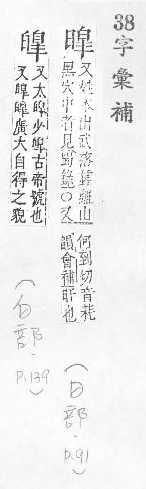 38字彙補
暤
又姓本出武落鍾離山
黑穴中者見野錄○又
何到切音耗
韻會補旰也
(日部.P.91)
皞
又太皞少皞古帝號也
又皞皞廣大自得之貌
(白部.P.139)